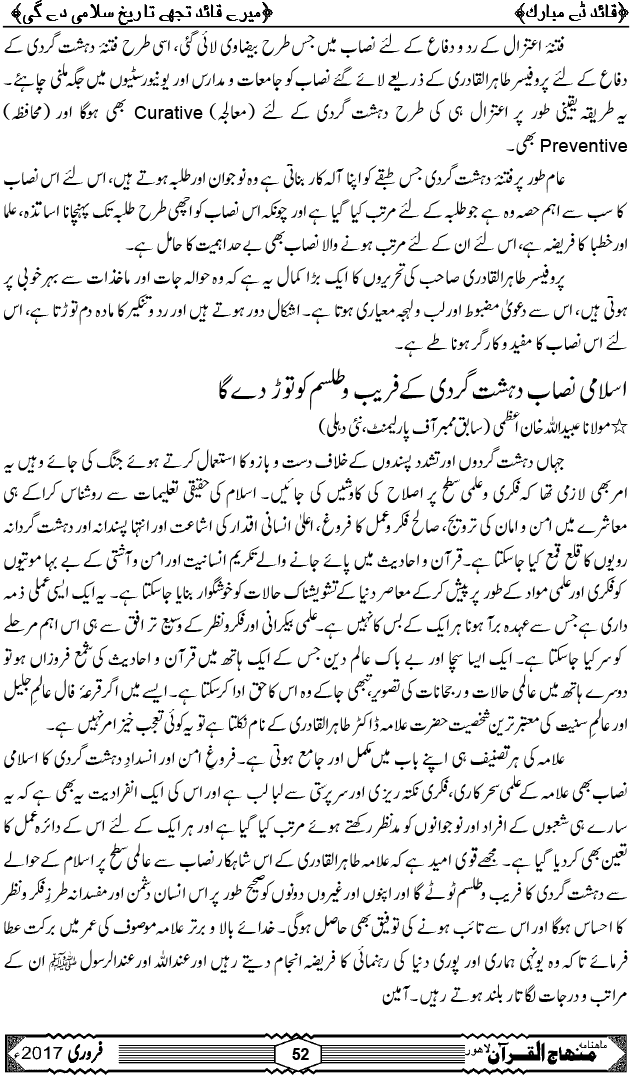 ﴿قائد ڈے مبارک﴾ ﴿میرے قائد تجھے تاریخ سلامی دے گی﴾
فتنۂ اعتزال کے رد و دفاع کے لئے نصاب میں جس طرح بیضاوی لائی گئی، اسی طرح فتنۂ دہشت گردی کے
دفاع کے لئے پروفیسر طاہرالقادری کے ذریعے لائے گئے نصاب کو جامعات و مدارس اور یونیورسٹیوں میں جگہ ملنی چاہئے۔
یہ طریقہ یقینی طور پر اعتزال ہی کی طرح دہشت گردی کے لئے (معالجہ) Curative بھی ہوگا اور (محافظہ)
Preventive بھی۔
عام طور پر فتنۂ دہشت گردی جس طبقے کو اپنا آلہ کار بناتی ہے وہ نوجوان اور طلبہ ہوتے ہیں، اس لئے اس نصاب
کا سب سے اہم حصہ وہ ہے جو طلبہ کے لئے مرتب کیا گیا ہے اور چونکہ اس نصاب کو اچھی طرح طلبہ تک پہنچانا اساتذہ، علما
اور خطبا کا فریضہ ہے، اس لئے ان کے لئے مرتب ہونے والا نصاب بھی بے حد اہمیت کا حامل ہے۔
پروفیسر طاہرالقادری صاحب کی تحریروں کا ایک بڑا کمال یہ ہے کہ وہ حوالہ جات اور ماخذات سے بہرخوبی پر
ہوتی ہیں، اس سے دعویٰ مضبوط اور لب و لہجہ معیاری ہوتا ہے۔ اشکال دور ہوتے ہیں اور رد و تنکیر کا مادہ دم توڑتا ہے، اس
لئے اس نصاب کا مفید و کارگر ہونا طے ہے۔
اسلامی نصاب دہشت گردی کے فریب و طلسم کو توڑ دے گا
☆مولانا عبیداللہ خان اعظمی (سابق ممبر آف پارلیمنٹ، نئی دہلی)
جہاں دہشت گردوں اور تشدد پسندوں کے خلاف دست و بازو کا استعمال کرتے ہوئے جنگ کی جائے وہیں یہ
امر بھی لازمی تھا کہ فکری و علمی سطح پر اصلاح کی کاوشیں کی جائیں۔ اسلام کی حقیقی تعلیمات سے روشناس کراکے ہی
معاشرے میں امن و امان کی ترویج، صالح فکر و عمل کا فروغ، اعلیٰ انسانی اقدار کی اشاعت اور انتہا پسندانہ اور دہشت گردانہ
رویوں کا قلع قمع کیا جاسکتا ہے۔ قرآن و احادیث میں پائے جانے والے تکریم انسانیت اور امن و آشتی کے بے بہا موتیوں
کو فکری اور علمی مواد کے طور پر پیش کرکے معاصر دنیا کے تشویشناک حالات کو خوشگوار بنایا جاسکتا ہے۔ یہ ایک ایسی عملی ذمہ
داری ہے جس سے عہدہ برآ ہونا ہر ایک کے بس کا نہیں ہے۔ علمی بیکرانی اور فکر و نظر کے وسیع تر افق سے ہی اس اہم مرحلے
کو سر کیا جاسکتا ہے۔ ایک ایسا سچا اور بے باک عالم دین جس کے ایک ہاتھ میں قرآن و احادیث کی شمع فروزاں ہو تو
دوسرے ہاتھ میں عالمی حالات و رجحانات کی تصویر، تبھی جاکے وہ اس کا حق ادا کرسکتا ہے۔ ایسے میں اگر قرعۂ فال عالمِ جلیل
اور عالمِ سنیت کی معتبر ترین شخصیت حضرت علامہ ڈاکٹر طاہرالقادری کے نام نکلتا ہے تو یہ کوئی تعجب خیز امر نہیں ہے۔
علامہ کی ہر تصنیف ہی اپنے باب میں مکمل اور جامع ہوتی ہے۔ فروغ امن اور انسدادِ دہشت گردی کا اسلامی
نصاب بھی علامہ کے علمی سحر کاری، فکری نکتہ ریزی اور سرپرستی سے لبا لب ہے اور اس کی ایک انفرادیت یہ بھی ہے کہ یہ
سارے ہی شعبوں کے افراد اور نوجوانوں کو مدنظر رکھتے ہوئے مرتب کیا گیا ہے اور ہر ایک کے لئے اس کے دائرہ عمل کا
تعین بھی کردیا گیا ہے۔ مجھے قوی امید ہے کہ علامہ طاہرالقادری کے اس شاہکار نصاب سے عالمی سطح پر اسلام کے حوالے
سے دہشت گردی کا فریب و طلسم ٹوٹے گا اور اپنوں اور غیروں دونوں کو صحیح طور پر اس انسان دشمن اور مفسدانہ طرزِ فکر و نظر
کا احساس ہوگا اور اس سے تائب ہونے کی توفیق بھی حاصل ہوگی۔ خدائے بالا و برتر علامہ موصوف کی عمر میں برکت عطا
فرمائے تاکہ وہ یونہی ہماری اور پوری دنیا کی رہنمائی کا فریضہ انجام دیتے رہیں اور عنداللہ اور عندالرسول ﷺ ان کے
مراتب و درجات لگاتار بلند ہوتے رہیں۔ آمین
ماہنامہ منہاج القرآن لاہور 52 فروری 2017ء